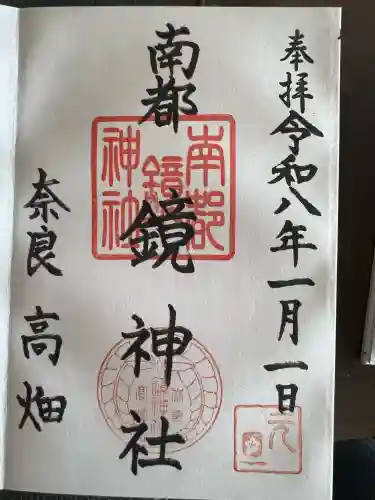 奉拝 令和八年一月一日
南都 鏡神社
奈良 高畑
南都
鏡
神社